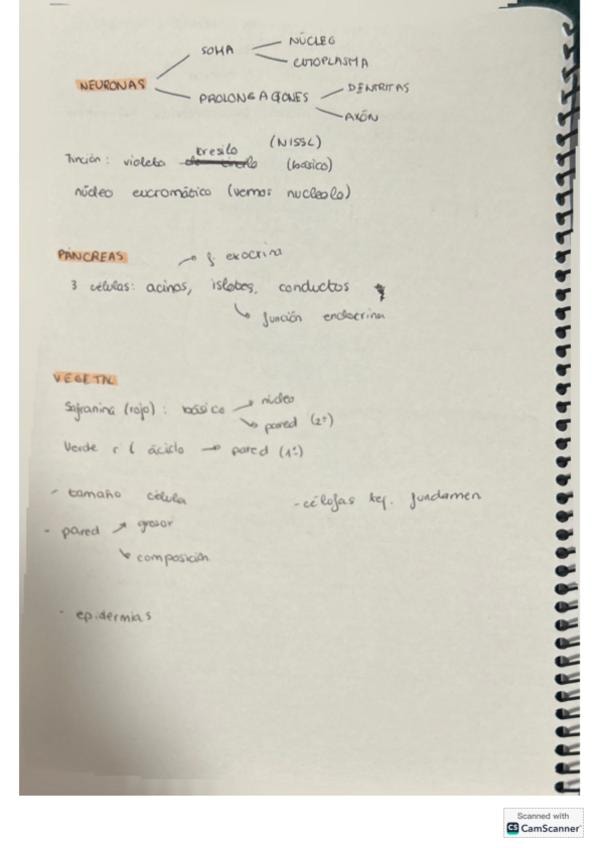 NEURONAS
SOMA
NÚCLEO
CITOPLASMA
PROLONGACIONES
DENTRITAS
AXÓN
cresilo (NISSL)
Tinción: violeta (básico)
núcleo eucromático (vemos nucleolo)
PÁNCREAS
f exocrina
3 células: acinos, islotes, conductos
función endocrina
VEGETAL
Safranina (rojo): básico
núcleo
pared (2ª)
Verde ácido → pared (1ª)
- tamaño célula
- células tej. fundamen
- pared
grosor
composición
- epidermias
Scanned with
CS CamScanner